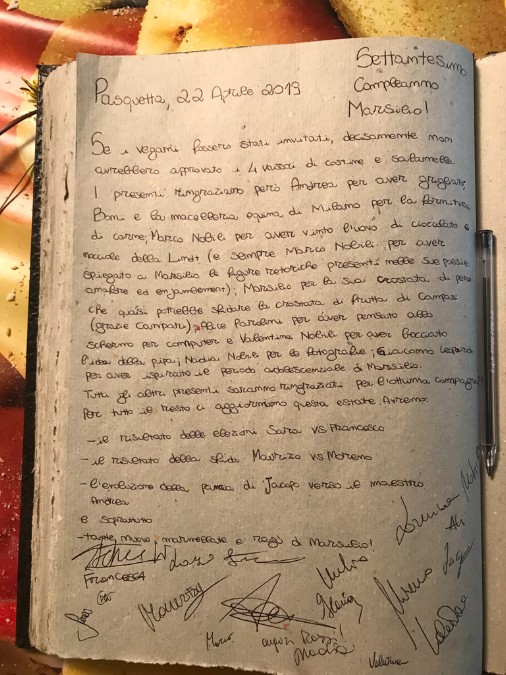 Settantesimo
Compleanno
Marsilio!
Pasquetta, 22 Aprile 2019
Se i vegani fossero stati invitati, decisamente non
avrebbero approvato i 4 vassoi di costine e salamelle.
I presenti ringraziano però Andrea per aver grigliato;
Bomi e la macelleria equina di Milano per la fornitura
di carne; Marco Nobili per aver vinto l'uovo di cioccolato e
nocciole della Lindt (e sempre Marco Nobili per aver
spiegato a Marsilio le figure retoriche presenti nelle sue poesie
anafore ed enjambement); Marsilio per la sua crostata di pere
che quasi potrebbe sfidare la crostata di frutta di Campar
(grazie Campari); Alice Parolini per aver pensato allo
schermo per computer e Valentina Nobili per aver bocciato
l'idea della pipa; Nadia Nobili per le fotografie; Giacomo Leopardi
per aver ispirato il periodo adolescenziale di Marsilio.
Tutti gli altri presenti saranno ringraziati per l'ottima compagnia!
Per tutto il resto ci aggiorniamo questa estate. Avremo:
- il risultato delle elezioni Sara vs Francesco
- il risultato della sfida Maurizio vs Moreno
- l'evoluzione della di Jacopo verso il maestro
Andrea
e soprattutto
- tante, nuove, marmellate e ragù di Marsilio!
Francesca
Marco
Nadia
Valentina